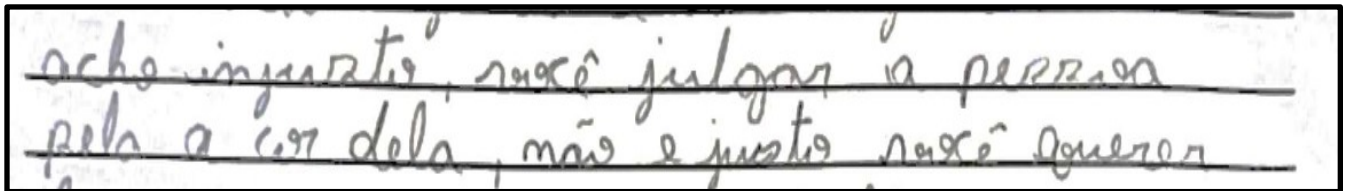 acho injusto, você julgar a pessoa
pela a cor dela, não e justo você querer